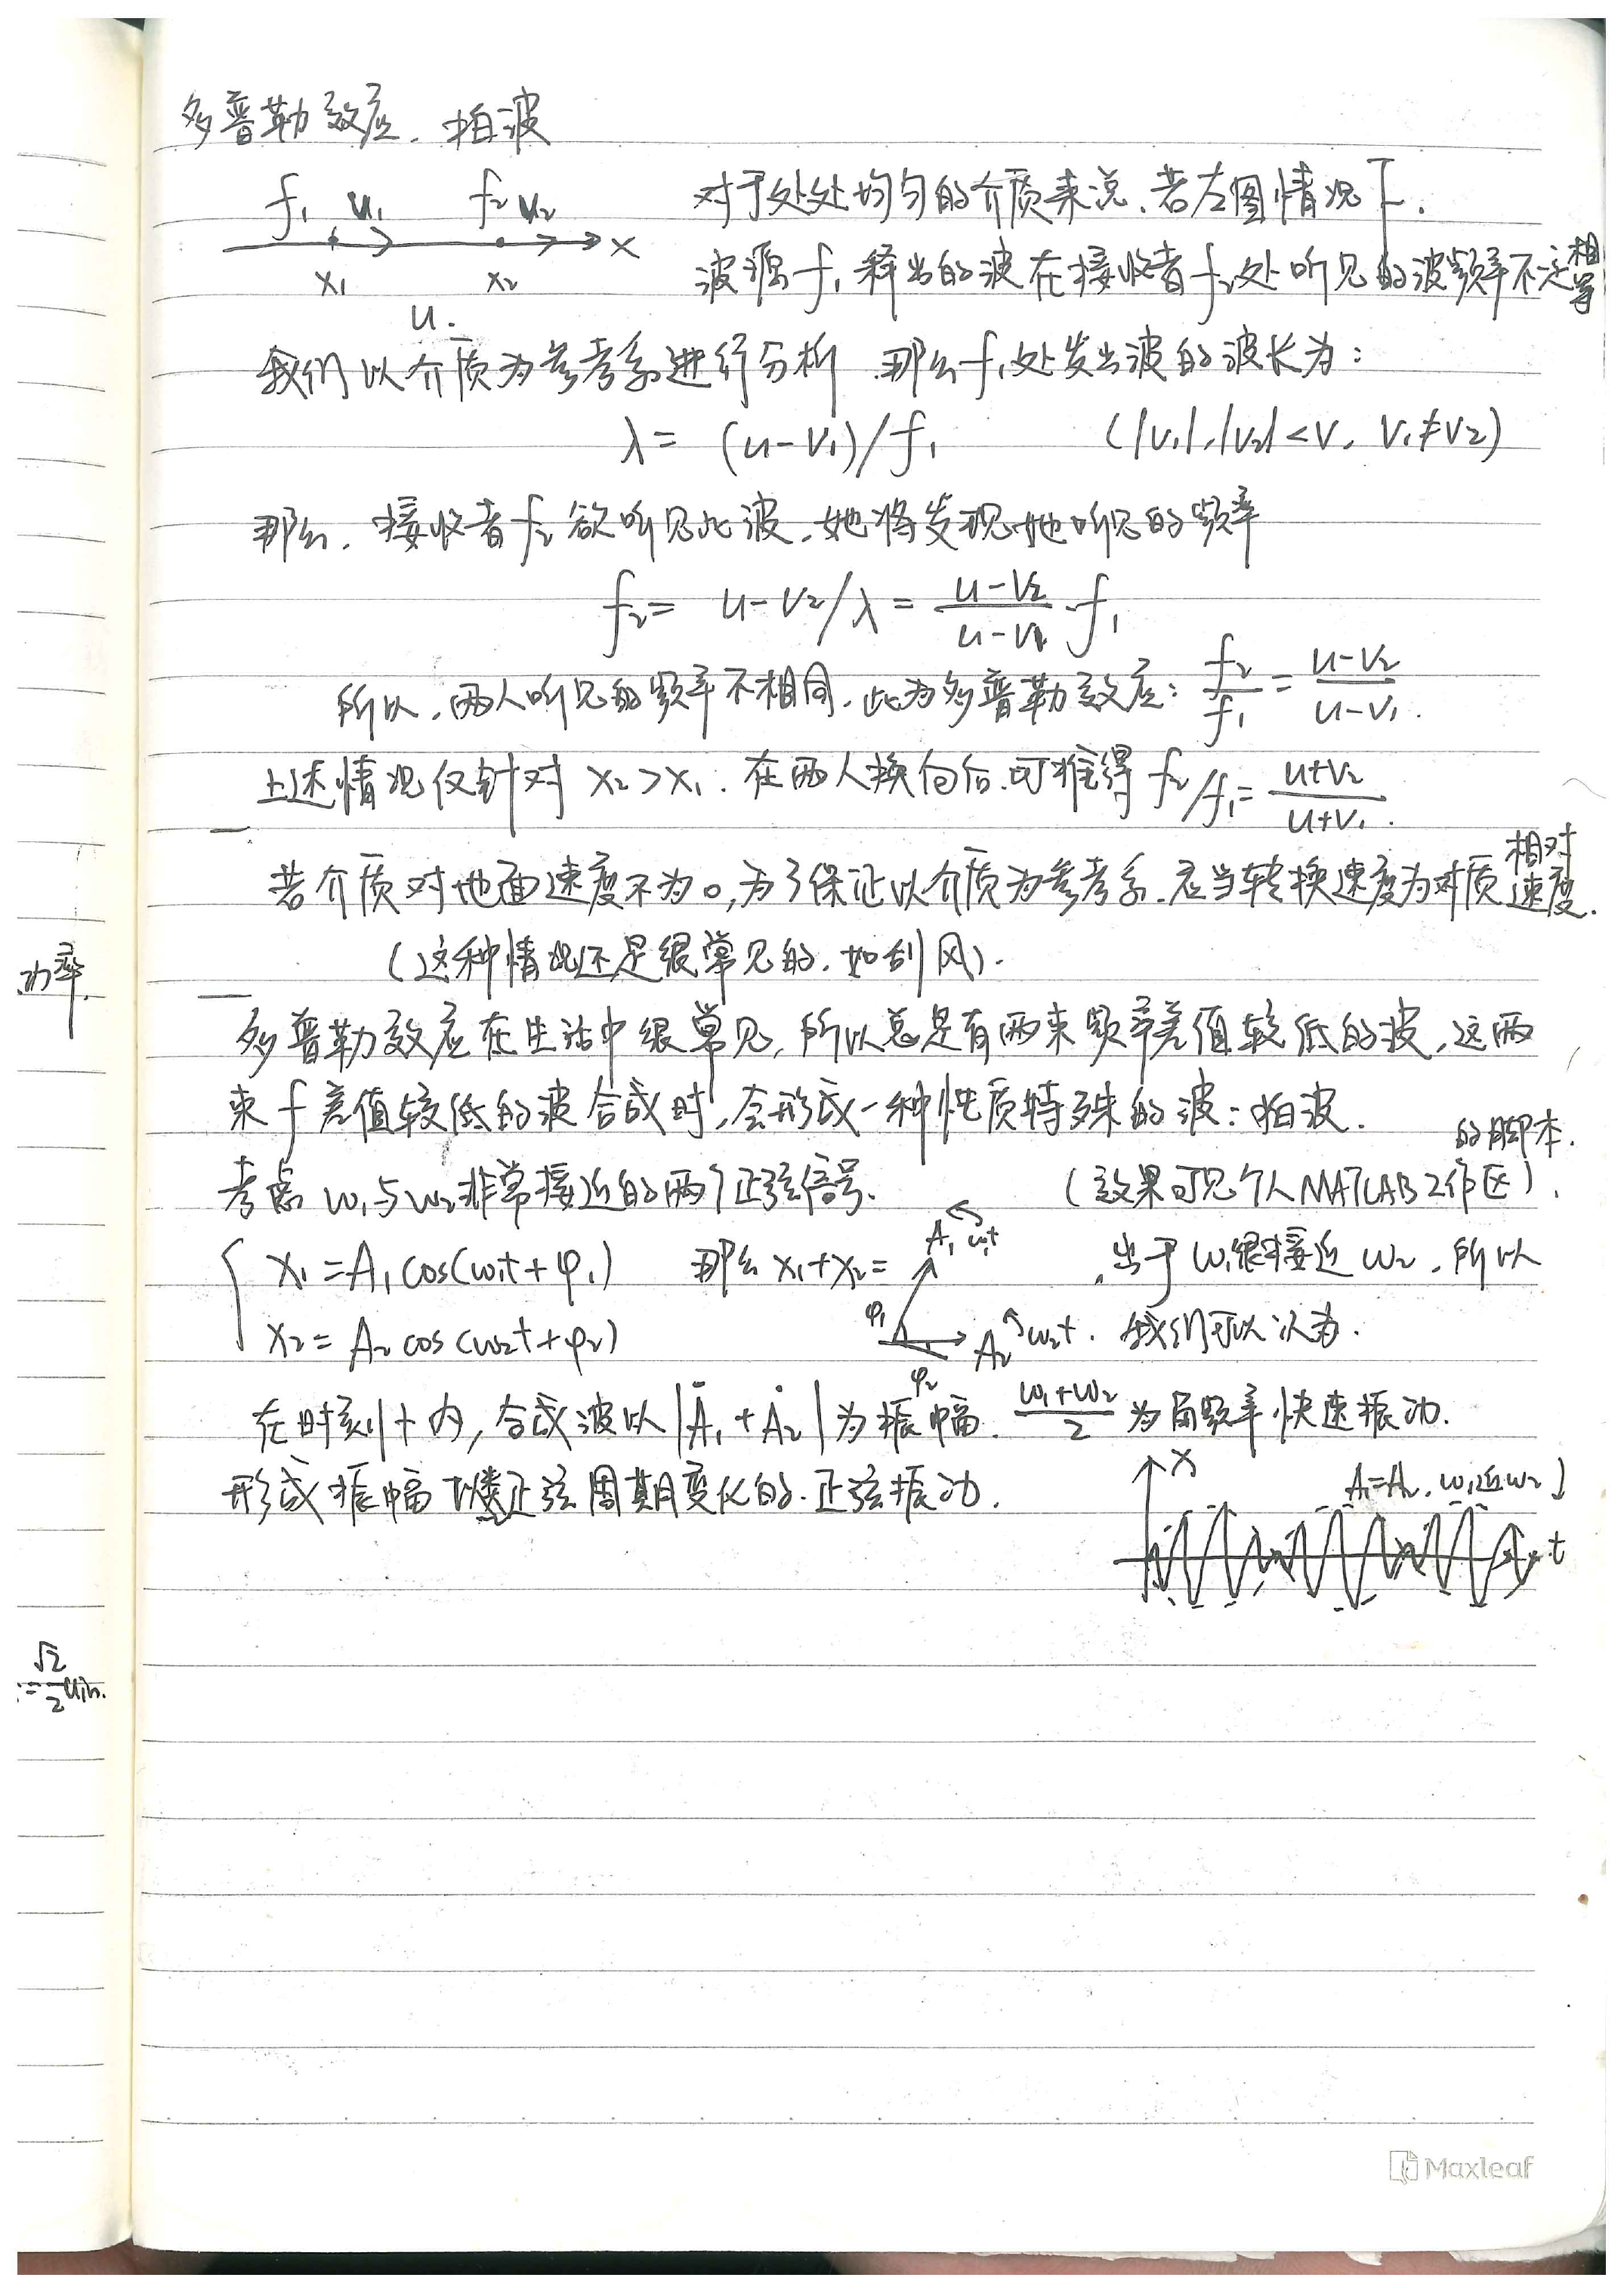 多普勒效应. 拍波
f₁ u₁ f₂ u₂ x
x₁ x₂
u.
对于处处均匀的介质来说. 若左图情况下.
波源f₁释出的波在接收者f₂处听见的波频率不一定相等
我们以介质为参考系进行分析 那么f₁处发出波的波长为:
λ = (u-v₁)/f₁ (|v₁|,|v₂|<v, v₁≠v₂)
那么, 接收者f₂欲听见此波, 她将发现她听见的频率
f₂= u-v₂/λ = \frac{u-v₂}{u-v₁}·f₁
所以, 两人听见的频率不相同, 此为多普勒效应: \frac{f₂}{f₁}=\frac{u-v₂}{u-v₁}.
上述情况仅针对 x₂>x₁. 在两人换向后.可推得 f₂/f₁=\frac{u+v₂}{u+v₁}.
若介质对地面速度不为0,为了保证以介质为参考系.应当转换速度为对质相对速度.
(这种情况还是很常见的. 如刮风).
多普勒效应在生活中很常见, 所以总是有两束频率差值较低的波, 这两
束f差值较低的波合成时,会形成一种性质特殊的波: 拍波.
考虑 ω₁与ω₂非常接近的两个正弦信号. (效果可见个人MATLAB工作区的脚本).
x₁=A₁cos(ω₁t+φ₁) 那么 x₁+x₂= A₁ ω₁t φ₁ , 出于ω₁很接近ω₂, 所以
x₂=A₂cos(ω₂t+φ₂) A₂ ω₂t. φ₂ 我们可以认为.
在时刻t内, 合成波以|Ȧ₁+Ȧ₂|为振幅. \frac{ω₁+ω₂}{2}为角频率快速振动.
形成振幅正弦周期变化的.正弦振动.
x A₁=A₂, ω₁近ω₂ t
功率.
=\frac{√2}{2}
Maxleaf